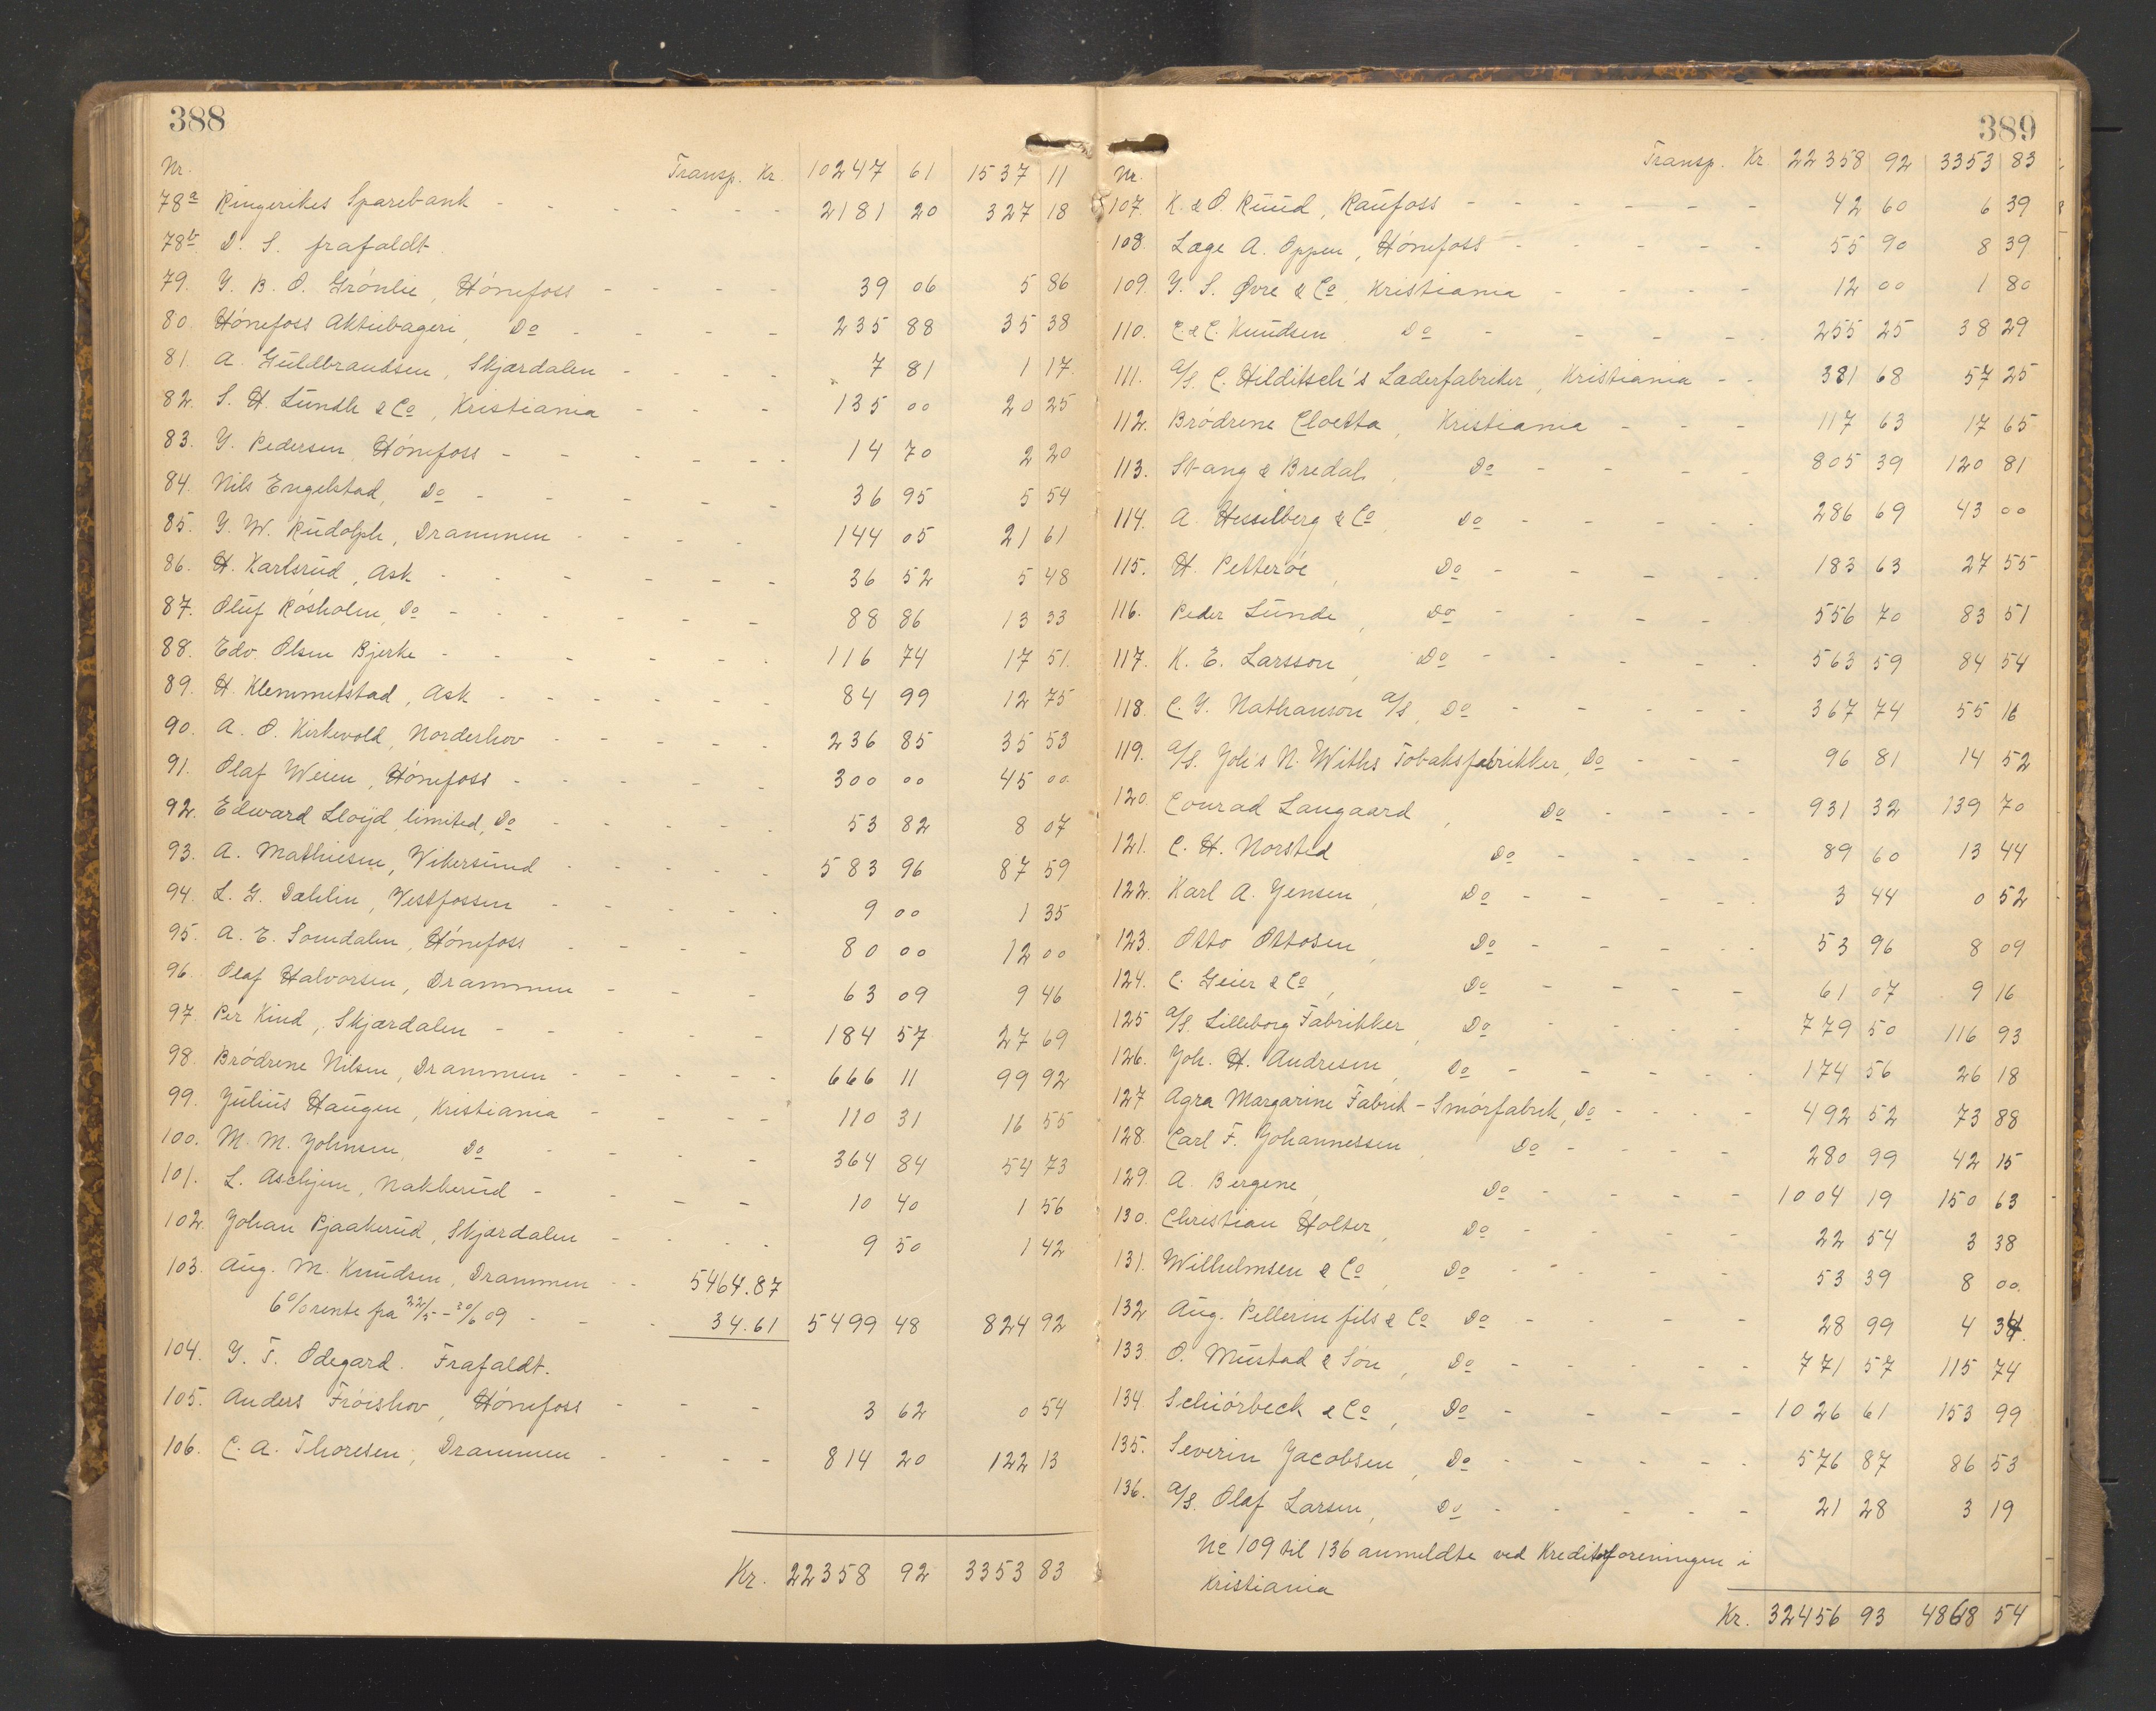 388
Nr. Transp. Kr. 10247 61 1537 11
78a Ringerikes Sparebank - - - - - - 2181 20 327 18
78b D. S. frafaldt.
79. J. B. O. Grónlie, Hónefoss - - - - 39 06 5 86
80. Hónefoss Aktiebageri, Do - - - - 235 88 35 38
81. A. Guldbrandsen, Skjærdalen - - - - 7 81 1 17
82. S. H. Lundh & Co, Kristiania - - - 135 00 20 25
83. J. Pedersen, Hónefoss - - - - - - 14 70 2 20
84. Nils Engelstad, Do - - - - - 36 95 5 54
85. J. W. Rudolph, Drammen - - - - 144 05 21 61
86. H. Karlsrud, Ask - - - - - - 36 52 5 48
87. Oluf Rósholm, Do - - - - - - 88 86 13 33
88. Edv. Olsen Bjerke - - - - - - 116 74 17 51
89. H. Klemmetstad, Ask - - - - - 84 99 12 75
90. A. O. Kirkevold, Norderhov - - - - - 236 85 35 53
91. Olaf Weien, Hónefoss - - - - - 300 00 45 00
92. Edward Lloyd, limited, Do - - - - - 53 82 8 07
93. A. Mathiesen, Wikersund - - - - - 583 96 87 59
94. L. G. Dæhlin, Vestfossen - - - - - 9 00 1 35
95. A. E. Somdalen, Hónefoss - - - - 80 00 12 00
96. Olaf Halvorsen, Drammen - - - 63 09 9 46
97. Per Kind, Skjærdalen - - - - - 184 57 27 69
98. Brødrene Nilsen, Drammen - - - - - 666 11 99 92
99. Julius Haugen, Kristiania - - - - 110 31 16 55
100. M. M. Johnsen, Do - - - - 364 84 54 73
101. L. Aschjem, Nakkerud - - - - 10 40 1 56
102. Johan Pjaakerud, Skjærdalen - - - - 9 50 1 42
103. Aug. M. Knudsen, Drammen - - 5464.87
6% rente fra 22/5 - 30/6 09 - - - 34.61 5499 48 824 92
104. J. T. Odegard. Frafaldt.
105. Anders Fróishov, Hónefoss - - - 3 62 0 54
106. C. A. Thoresen, Drammen - - - - 814 20 122 13
Kr. 22358 92 3353 83
389
Nr. Transp. Kr. 22358 92 3353 83
107. K. & O. Ruud, Raufoss - - - - - - 42 60 6 39
108. Læge A. Oppen, Hónefoss - - - - - 55 90 8 39
109. J. S. Øvre & Co, Kristiania - - - - 12 00 1 80
110. C. & C. Knudsen Do - - - - - 255 25 38 29
111. A/S. C. Hilditsch's Læderfabriker, Kristiania - - 381 68 57 25
112. Bródrene Cloetta, Kristiania - - - 117 63 17 65
113. Stang & Bredal, Do - - - - 805 39 120 81
114. A. Hesselberg & Co Do - - - - - 286 69 43 00
115. H. Petterøe, Do - - - - - 183 63 27 55
116. Peder Lunde, Do - - - - 556 70 83 51
117. K. E. Larsson, Do - - - - - 563 59 84 54
118. C. J. Nathanson A/S, Do - - - - - 367 74 55 16
119. A/S. Joh's N. Withs Tobaksfabrikker, Do - - - 96 81 14 52
120. Conrad Langaard, Do - - - - 931 32 139 70
121. C. H. Norsted Do - - - - 89 60 13 44
122. Karl A. Jensen, Do - - - - - 3 44 0 52
123. Otto Ottosen, Do - - - - - 53 96 8 09
124. C. Geier & Co, Do - - - - 61 07 9 16
125 A/S. Lilleborg Fabrikker, Do - - - - 779 50 116 93
126. Joh. H. Andresen, Do - - - - - 174 56 26 18
127 Agra Margarine Fabrik - Smórfabrik, Do - - - - 492 52 73 88
128. Carl F. Johannessen, Do - - - - 280 99 42 15
129. A. Bergene, Do - - - - 1004 19 150 63
130. Christian Holter, Do - - - - - 22 54 3 38
131. Wilhelmsen & Co, Do - - - - - 53 39 8 00
132 Aug. Pellerin fils & Co Do - - - - 28 99 4 34
133 O. Mustad & Són, Do - - - - - 771 57 115 74
134. Schiórbeck & Co, Do - - - - 1026 61 153 99
135. Severin Jacobsen, Do - - - - - 576 87 86 53
136. A/S. Olaf Larsen, Do - - - - - 21 28 3 19
No 109 til 136 anmeldte ved Kreditorforeningen i
Kristiania
Kr. 32456 93 4868 54